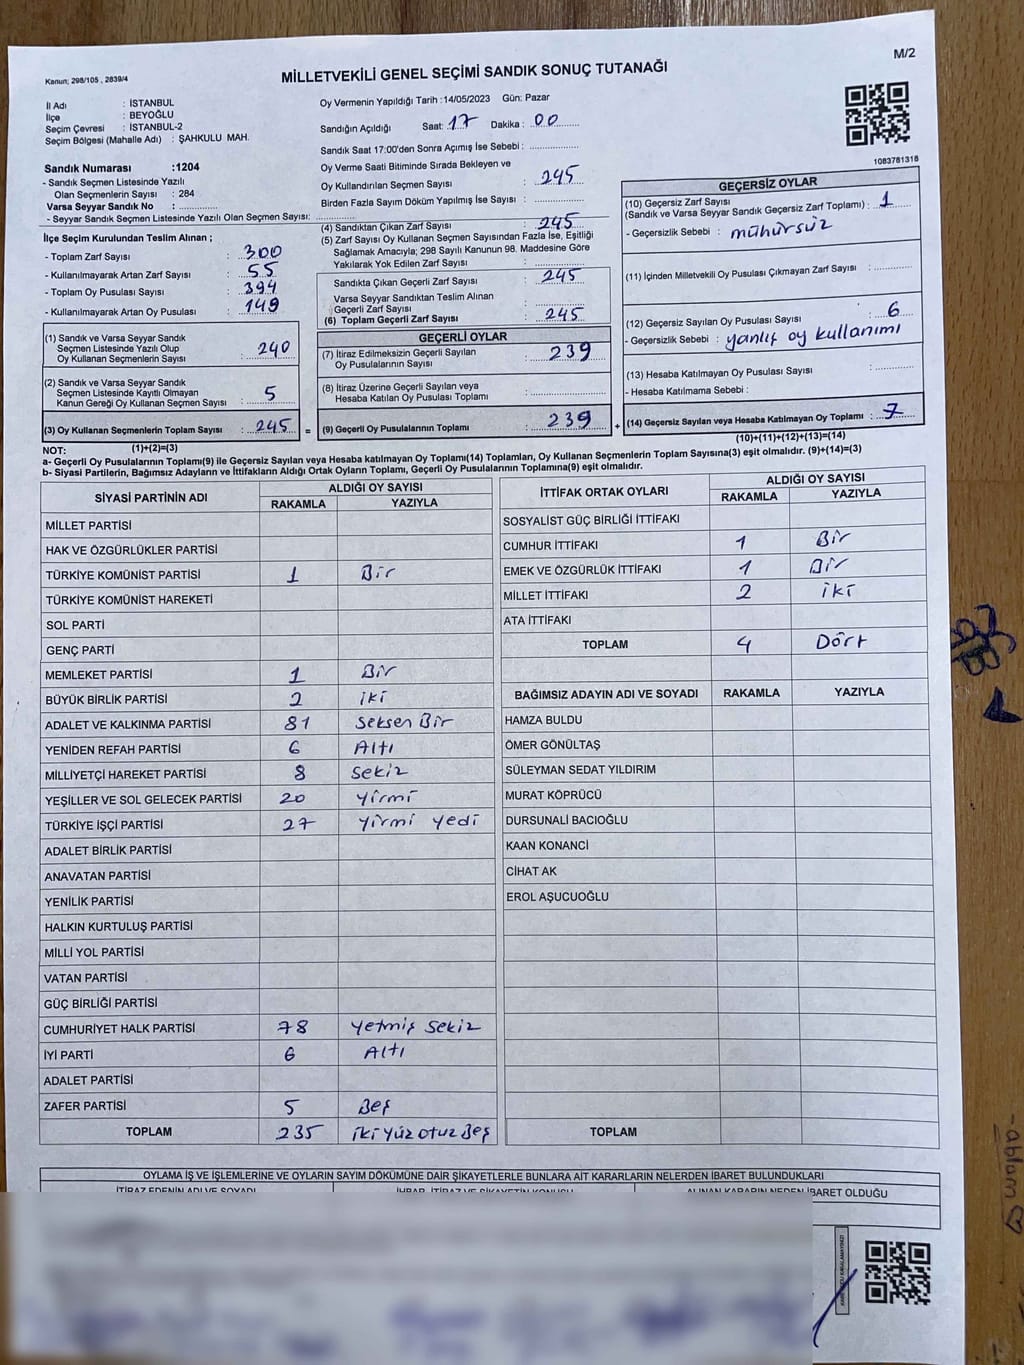 M/2
Kanun; 298/105 , 2839/4
MİLLETVEKİLİ GENEL SEÇİMİ SANDIK SONUÇ TUTANAĞI
İl Adı : İSTANBUL
İlçe : BEYOĞLU
Seçim Çevresi : İSTANBUL-2
Seçim Bölgesi (Mahalle Adı) : ŞAHKULU MAH.
Sandık Numarası :1204
- Sandık Seçmen Listesinde Yazılı
Olan Seçmenlerin Sayısı : 284
Varsa Seyyar Sandık No :
- Seyyar Sandık Seçmen Listesinde Yazılı Olan Seçmen Sayısı:
İlçe Seçim Kurulundan Teslim Alınan ;
- Toplam Zarf Sayısı : 300
- Kullanılmayarak Artan Zarf Sayısı : 55
- Toplam Oy Pusulası Sayısı : 394
- Kullanılmayarak Artan Oy Pusulası : 149
(1) Sandık ve Varsa Seyyar Sandık
Seçmen Listesinde Yazılı Olup
Oy Kullanan Seçmenlerin Sayısı : 240
(2) Sandık ve Varsa Seyyar Sandık
Seçmen Listesinde Kayıtlı Olmayan
Kanun Gereği Oy Kullanan Seçmen Sayısı : 5
(3) Oy Kullanan Seçmenlerin Toplam Sayısı : 245
(1)+(2)=(3)
Oy Vermenin Yapıldığı Tarih :14/05/2023 Gün: Pazar
Sandığın Açıldığı Saat: 17 Dakika : 00
Sandık Saat 17:00'den Sonra Açımış İse Sebebi :
Oy Verme Saati Bitiminde Sırada Bekleyen ve
Oy Kullandırılan Seçmen Sayısı : 245
Birden Fazla Sayım Döküm Yapılmış İse Sayısı :
(4) Sandıktan Çıkan Zarf Sayısı : 245
(5) Zarf Sayısı Oy Kullanan Seçmen Sayısından Fazla İse, Eşitliği
Sağlamak Amacıyla; 298 Sayılı Kanunun 98. Maddesine Göre
Yakılarak Yok Edilen Zarf Sayısı :
Sandıkta Çıkan Geçerli Zarf Sayısı : 245
Varsa Seyyar Sandıktan Teslim Alınan
Geçerli Zarf Sayısı :
(6) Toplam Geçerli Zarf Sayısı : 245
GEÇERLİ OYLAR
(7) İtiraz Edilmeksizin Geçerli Sayılan
Oy Pusulalarının Sayısı : 239
(8) İtiraz Üzerine Geçerli Sayılan veya
Hesaba Katılan Oy Pusulası Toplamı :
= (9) Geçerli Oy Pusulalarının Toplamı : 239 +
1083781318
GEÇERSİZ OYLAR
(10) Geçersiz Zarf Sayısı
(Sandık ve Varsa Seyyar Sandık Geçersiz Zarf Toplamı) : 1
- Geçersizlik Sebebi : mühürsüz
(11) İçinden Milletvekili Oy Pusulası Çıkmayan Zarf Sayısı :
(12) Geçersiz Sayılan Oy Pusulası Sayısı : 6
- Geçersizlik Sebebi : yanlış oy kullanımı
(13) Hesaba Katılmayan Oy Pusulası Sayısı :
- Hesaba Katılmama Sebebi :
(14) Geçersiz Sayılan veya Hesaba Katılmayan Oy Toplamı : 7
(10)+(11)+(12)+(13)=(14)
NOT:
a- Geçerli Oy Pusulalarının Toplamı(9) ile Geçersiz Sayılan veya Hesaba katılmayan Oy Toplamı(14) Toplamları, Oy Kullanan Seçmenlerin Toplam Sayısına(3) eşit olmalıdır. (9)+(14)=(3)
b- Siyasi Partilerin, Bağımsız Adayların ve İttifakların Aldığı Ortak Oyların Toplamı, Geçerli Oy Pusulalarının Toplamına(9) eşit olmalıdır.
SİYASİ PARTİNİN ADI ALDIĞI OY SAYISI
RAKAMLA YAZIYLA
MİLLET PARTİSİ
HAK VE ÖZGÜRLÜKLER PARTİSİ
TÜRKİYE KOMÜNİST PARTİSİ 1 Bir
TÜRKİYE KOMÜNİST HAREKETİ
SOL PARTİ
GENÇ PARTİ
MEMLEKET PARTİSİ 1 Bir
BÜYÜK BİRLİK PARTİSİ 2 iki
ADALET VE KALKINMA PARTİSİ 81 Seksen Bir
YENİDEN REFAH PARTİSİ 6 Altı
MİLLİYETÇİ HAREKET PARTİSİ 8 Sekiz
YEŞİLLER VE SOL GELECEK PARTİSİ 20 Yirmi
TÜRKİYE İŞÇİ PARTİSİ 27 Yirmi Yedi
ADALET BİRLİK PARTİSİ
ANAVATAN PARTİSİ
YENİLİK PARTİSİ
HALKIN KURTULUŞ PARTİSİ
MİLLİ YOL PARTİSİ
VATAN PARTİSİ
GÜÇ BİRLİĞİ PARTİSİ
CUMHURİYET HALK PARTİSİ 78 Yetmiş Sekiz
İYİ PARTİ 6 Altı
ADALET PARTİSİ
ZAFER PARTİSİ 5 Beş
TOPLAM 235 İki Yüz Otuz Beş
İTTİFAK ORTAK OYLARI ALDIĞI OY SAYISI
RAKAMLA YAZIYLA
SOSYALİST GÜÇ BİRLİĞİ İTTİFAKI
CUMHUR İTTİFAKI 1 Bir
EMEK VE ÖZGÜRLÜK İTTİFAKI 1 Bir
MİLLET İTTİFAKI 2 iki
ATA İTTİFAKI
TOPLAM 4 Dört
BAĞIMSIZ ADAYIN ADI VE SOYADI RAKAMLA YAZIYLA
HAMZA BULDU
ÖMER GÖNÜLTAŞ
SÜLEYMAN SEDAT YILDIRIM
MURAT KÖPRÜCÜ
DURSUNALİ BACIOĞLU
KAAN KONANCİ
CİHAT AK
EROL AŞUCUOĞLU
TOPLAM
OYLAMA İŞ VE İŞLEMLERİNE VE OYLARIN SAYIM DÖKÜMÜNE DAİR ŞİKAYETLERLE BUNLARA AİT KARARLARIN NELERDEN İBARET BULUNDUKLARI
İTİRAZ EDENİN ADI VE SOYADI İHBAR, İTİRAZ VE ŞİKAYETİN KONUSU ALINAN KARARIN NEDEN İBARET OLDUĞU
-ablam